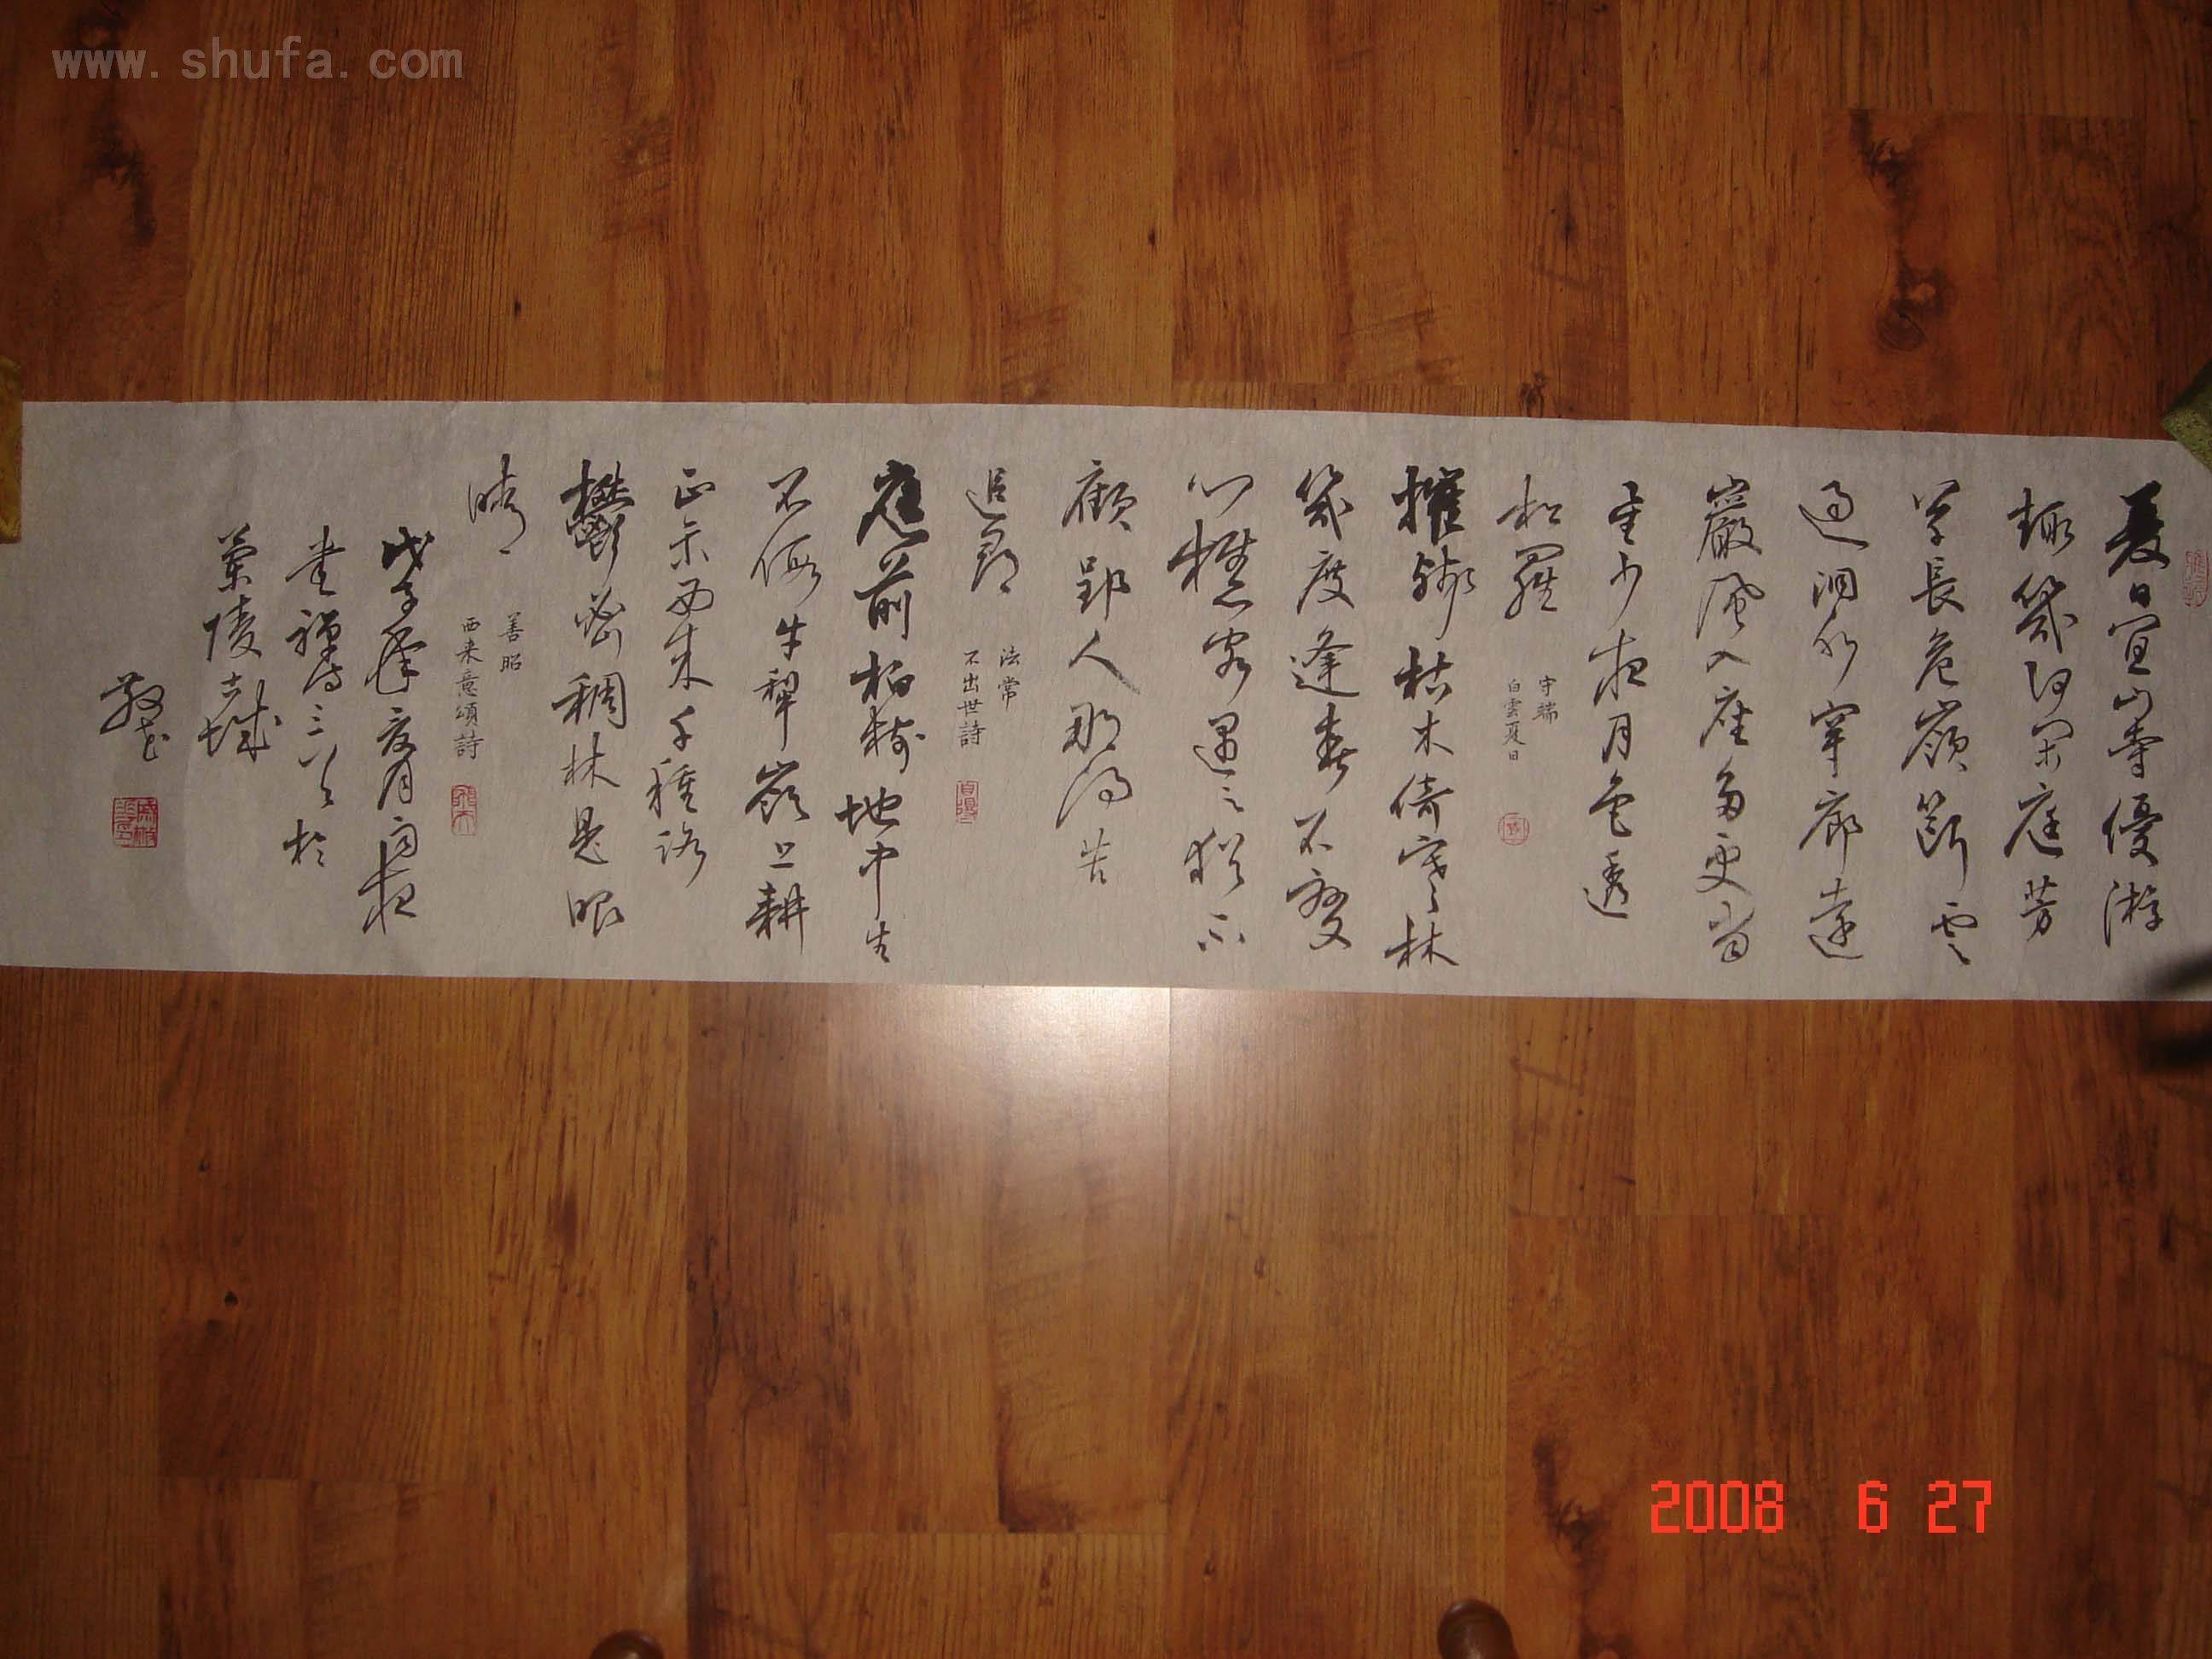 www.shufa.com
夏日宜山寺優游
趣幾何閑庭芳
草長危嶺斷雲
過洞水穿廊遠
巖風入座多更當
重夕夜月色透
松羅
守端
白雲夏日
摧殘枯木倚寒林
幾度逢春不變
心樵客遇之猶不
顧郢人那得苦
追尋
法常
不出世詩
庭前柏樹地中生
不假牛犁嶺上耕
正示西來千種路
鬱密稠林是眼
睛
善昭
西来意頌詩
戊子年夏月雨夜
書禪詩三首於
蘭陵古城
2008 6 27